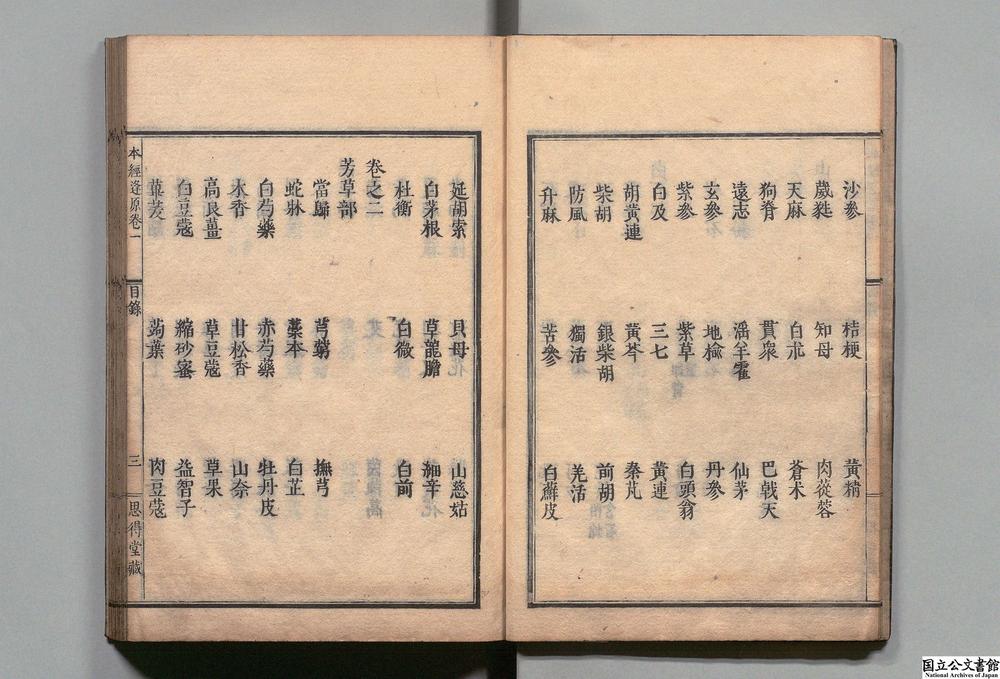 沙參 桔梗 黃精
葳蕤 知母 肉蓯蓉
天麻 白朮 蒼术
狗脊 貫衆 巴戟天
遠志 淫羊藿 仙茅
玄參 地榆 丹參
紫參 紫草 白頭翁
白及 三七 黃連
胡黃連 黃芩 秦艽
柴胡 銀柴胡 前胡
防風 獨活 羌活
升麻 苦參 白蘚皮
延胡索 貝母 山慈姑
白茅根 草龍膽 細辛
杜衡 白薇 白前
卷之二
芳草部
當歸 芎藭 撫芎
蛇牀 藁本 白芷
白芍藥 赤芍藥 牡丹皮
木香 甘松香 山奈
高良薑 草豆蔻 草果
白豆蔻 縮砂蜜 益智子
蓽茇 蒟葉 肉豆蔻
本經逢原卷一 目錄 三 思得堂藏
国立公文書館
National Archives of Japan